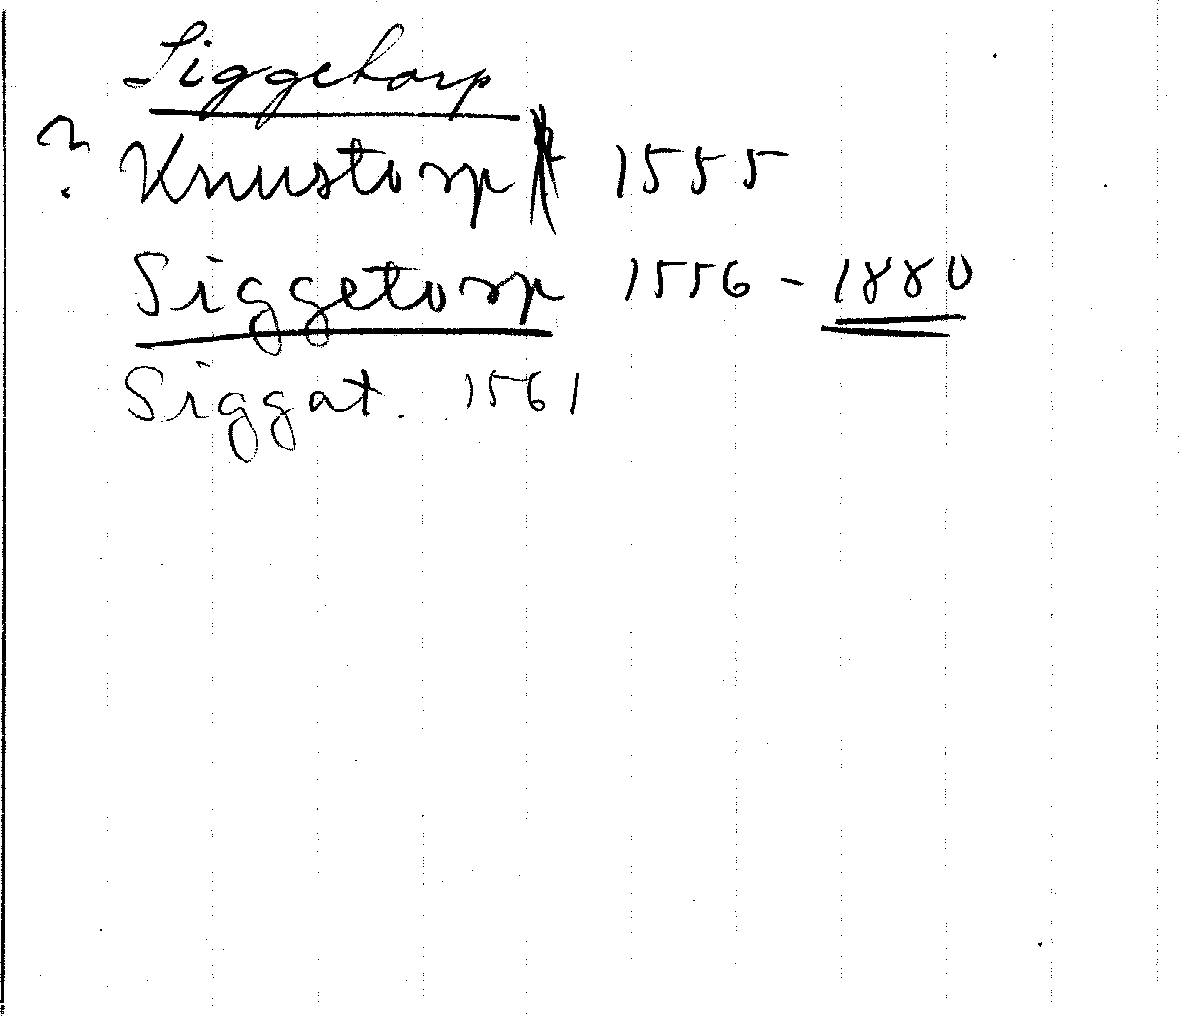 Siggetorp
? Knustorp 1555
Siggetorp 1556 - 1880
Siggat. 1561